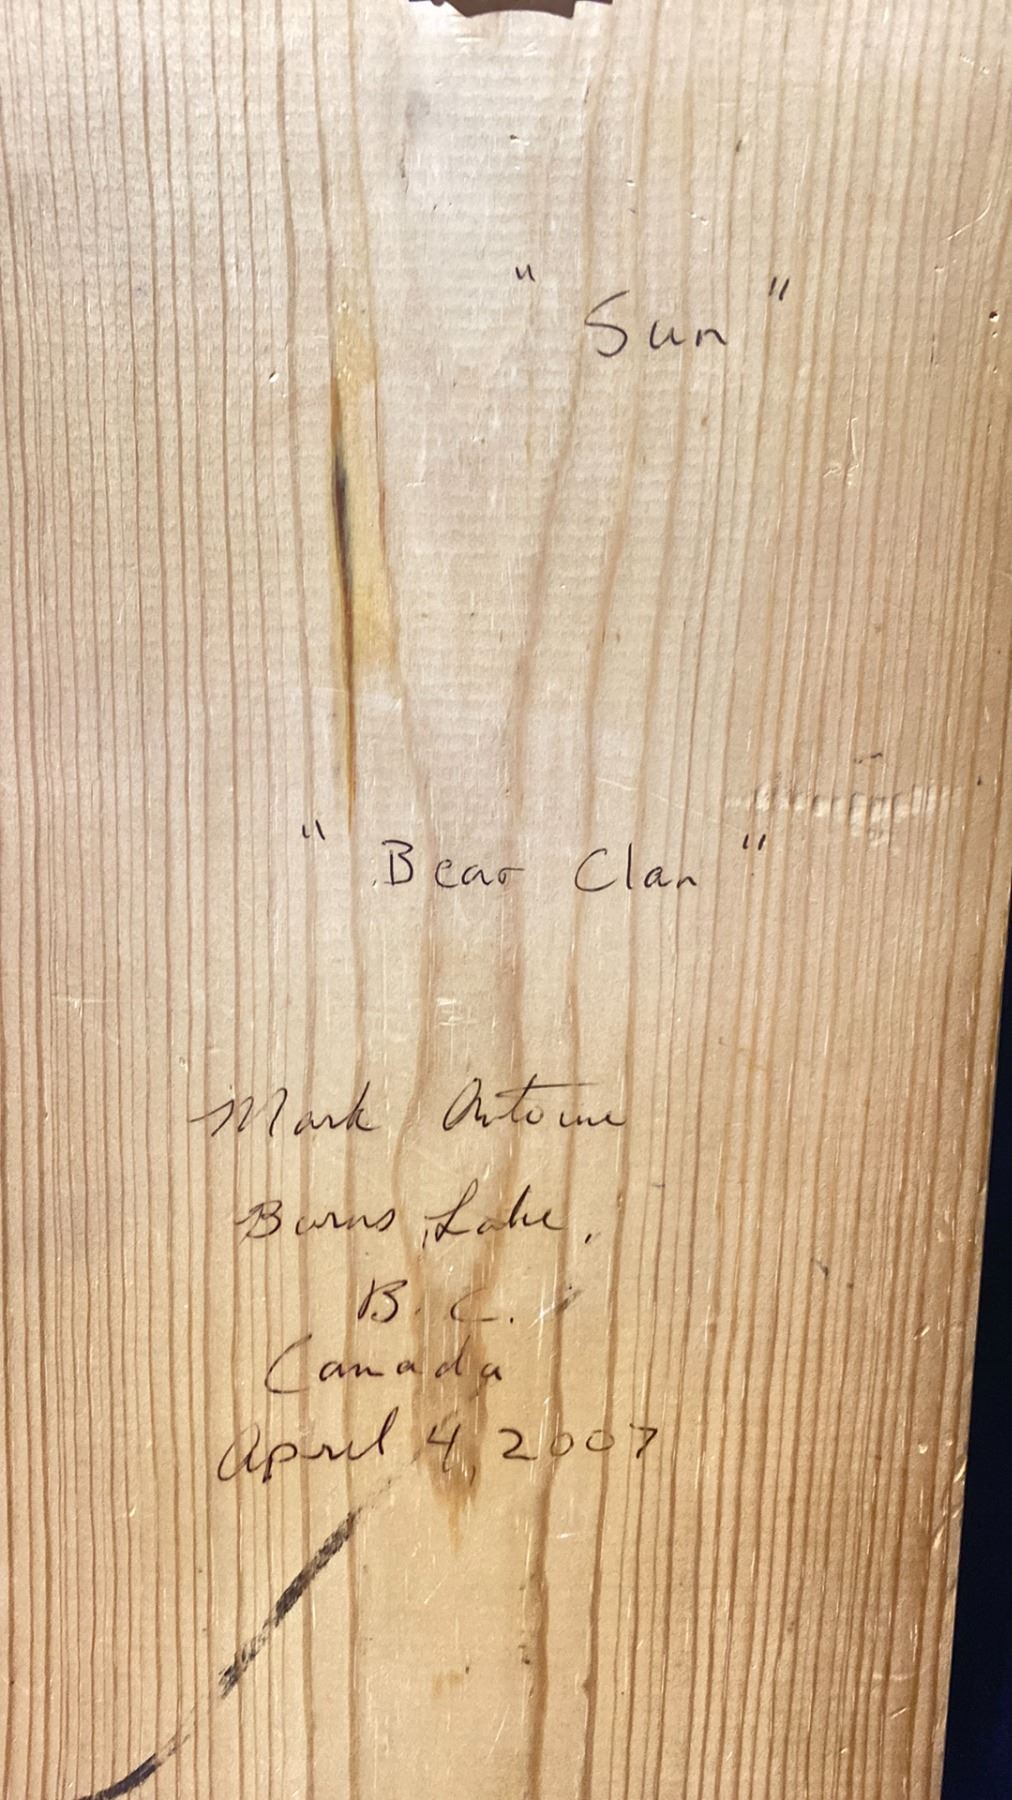 " Sun "
" Bear Clan "
Mark Antoine
Burns Lake,
B. C.
Canada
April 4, 2007